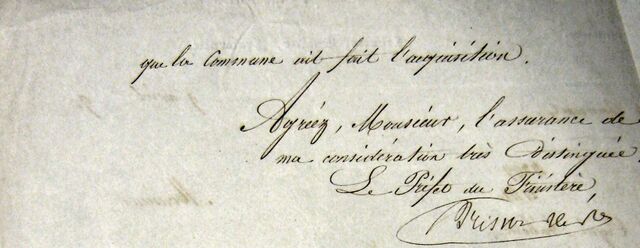 que la Commune ait fait l'acquisition.
Agréez, Monsieur, l'assurance de
ma considération très Distinguée.
Le Préfet du Finistère,